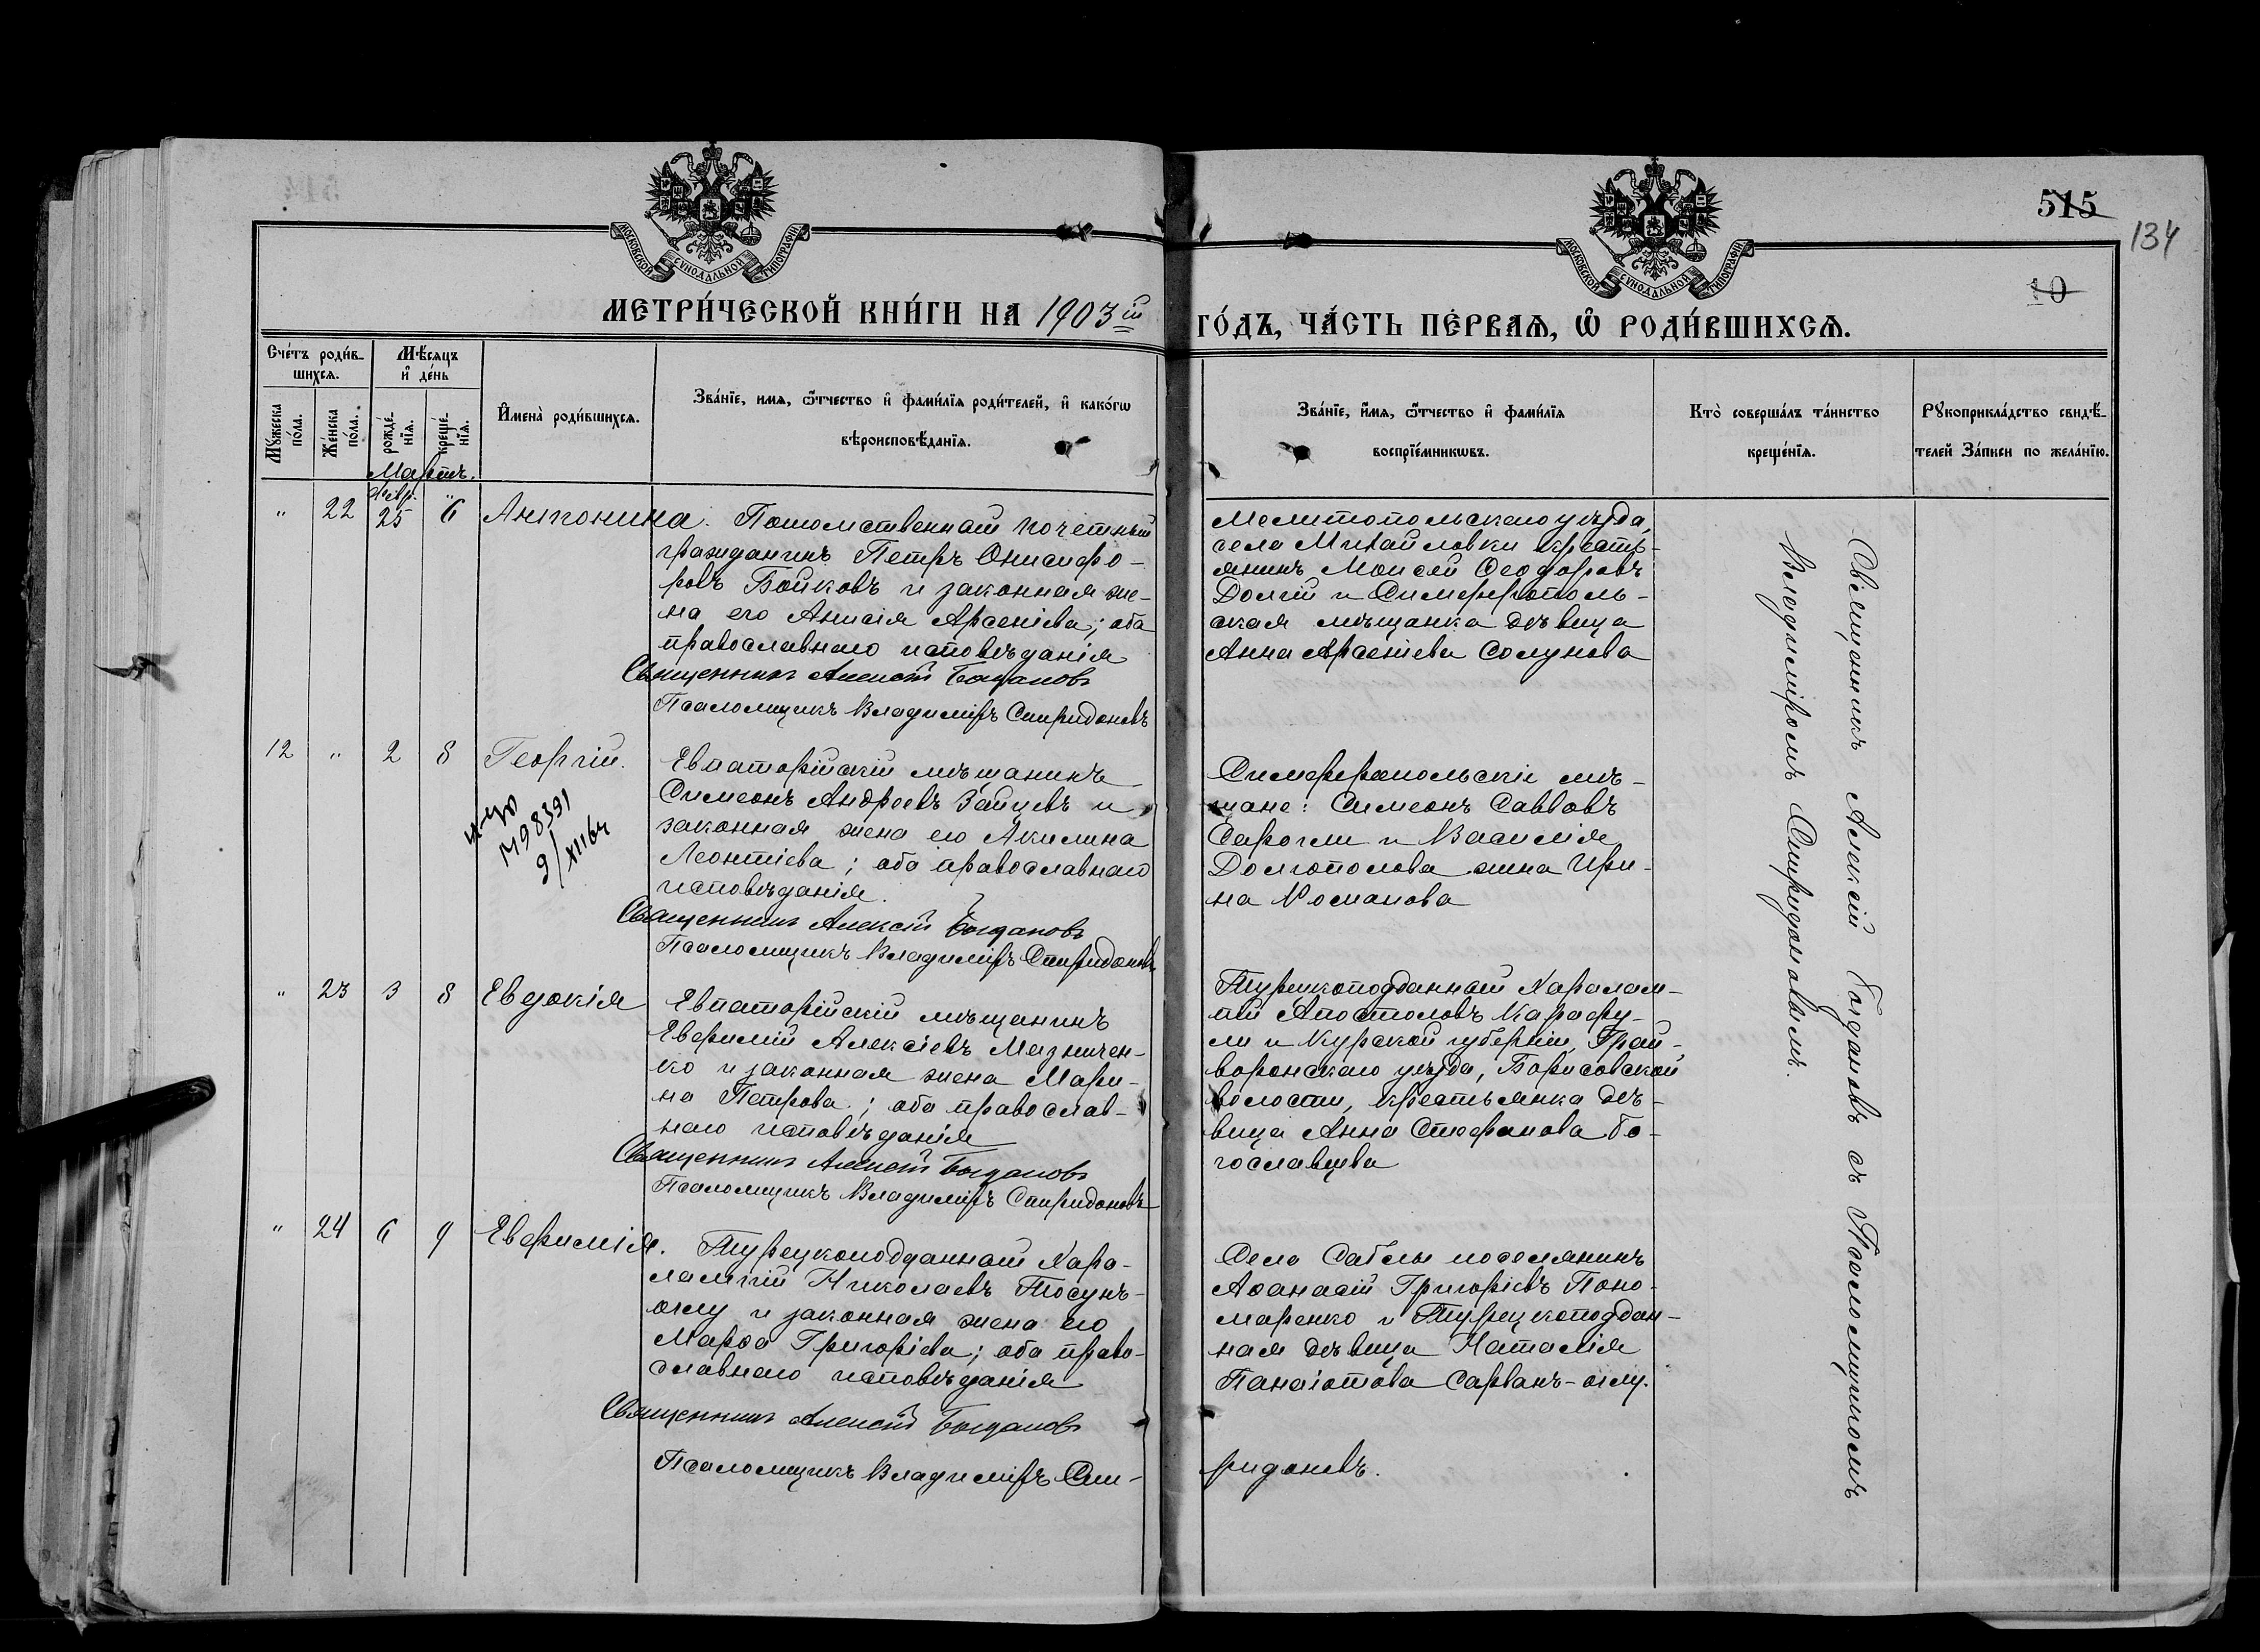 515
134
10
МОСКОВСКОЙ СУНОДАЛЬНОЙ ТИПОГРАФІИ
МОСКОВСКОЙ СУНОДАЛЬНОЙ ТИПОГРАФІИ
МЕТРИ́ЧЕСКОЙ КНИ́ГИ НА 1903й
ГО́ДЪ, ЧА́СТЬ ПЕ́РВАѦ, Ѽ РОДИ́ВШИХСѦ.
Сче́тъ роди́в-
шихсѧ.
Мѣ́сяцъ
и҆ де́нь
Мꙋ́жеска по́ла.
Же́нска по́ла.
рожде́-
нїѧ.
креще́-
нїѧ.
И҆мена̀ роди́вшихсѧ.
Зва́нїе, имѧ, ѻ҆́тчество и҆ фами́лїѧ роди́телей, и҆ како́гѡ
вѣроисповѣ́данїѧ.
Зва́нїе, и҆́мѧ, ѻ҆́тчество и҆ фами́лїѧ
воспрїе́мникѡвъ.
Кто̀ соверша́лъ та́инство
креще́нїѧ.
Рꙋкоприкла́дство свидѣ́-
телей За́писи по жела́нїю.
Мартъ.
" 22 Февр. 25 6 Антонина. Потомственный почетный
гражданинъ Петръ Онисифо-
ровъ Бойковъ и законная же-
на его Анисія Арсеніева; оба
православнаго исповѣданія
Священникъ Алексій Богдановъ
Псаломщикъ Владиміръ Спиридоновъ
Мелитопольскаго уѣзда,
села Михайловки кресть-
янинъ Моисей Ѳеодоровъ
Долгій и Симферополь-
ская мѣщанка дѣвица
Анна Арсеніева Солунова
12 " 2 8 Георгій. Евпаторійскій мѣщанинъ
Симеонъ Андреевъ Зайцевъ и
законная жена его Акилина
Леонтіева; оба православнаго
исповѣданія.
Священникъ Алексій Богдановъ
Псаломщикъ Владиміръ Спиридоновъ
М98391
9/XII64
Симферопольскіе мѣ-
щане: Симеонъ Савовъ
Сарогли и Василія
Долгополова жена Ири-
на Романова
" 23 3 8 Евдокія Евпаторійскій мѣщанинъ
Евфимій Алексіевъ Мазничен-
ко и законная жена Мари-
на Петрова; оба православ-
наго исповѣданія
Священникъ Алексій Богдановъ
Псаломщикъ Владиміръ Спиридоновъ
Турецкоподданный Харалам-
пій Апостоловъ Карафу-
ли и Курской губерніи, Грай-
воронскаго уѣзда, Борисовской
волости, крестьянка дѣ-
вица Анна Стефанова Бо-
гославцева
" 24 6 9 Евфимія. Турецкоподданный Хара-
лампій Николаевъ Тосунъ-
оглу и законная жена его
Марѳа Григоріева; оба право-
славнаго исповѣданія
Священникъ Алексій Богдановъ
Псаломщикъ Владиміръ Спи-
ридоновъ.
Села Саблы поселянинъ
Аѳанасій Григоріевъ Поно-
маренко и Турецкоподдан-
ная дѣвица Наталія
Панаіотова Сарванъ-оглу.
Священникъ Алексій Богдановъ съ Псаломщикомъ
Владиміромъ Спиридоновымъ.